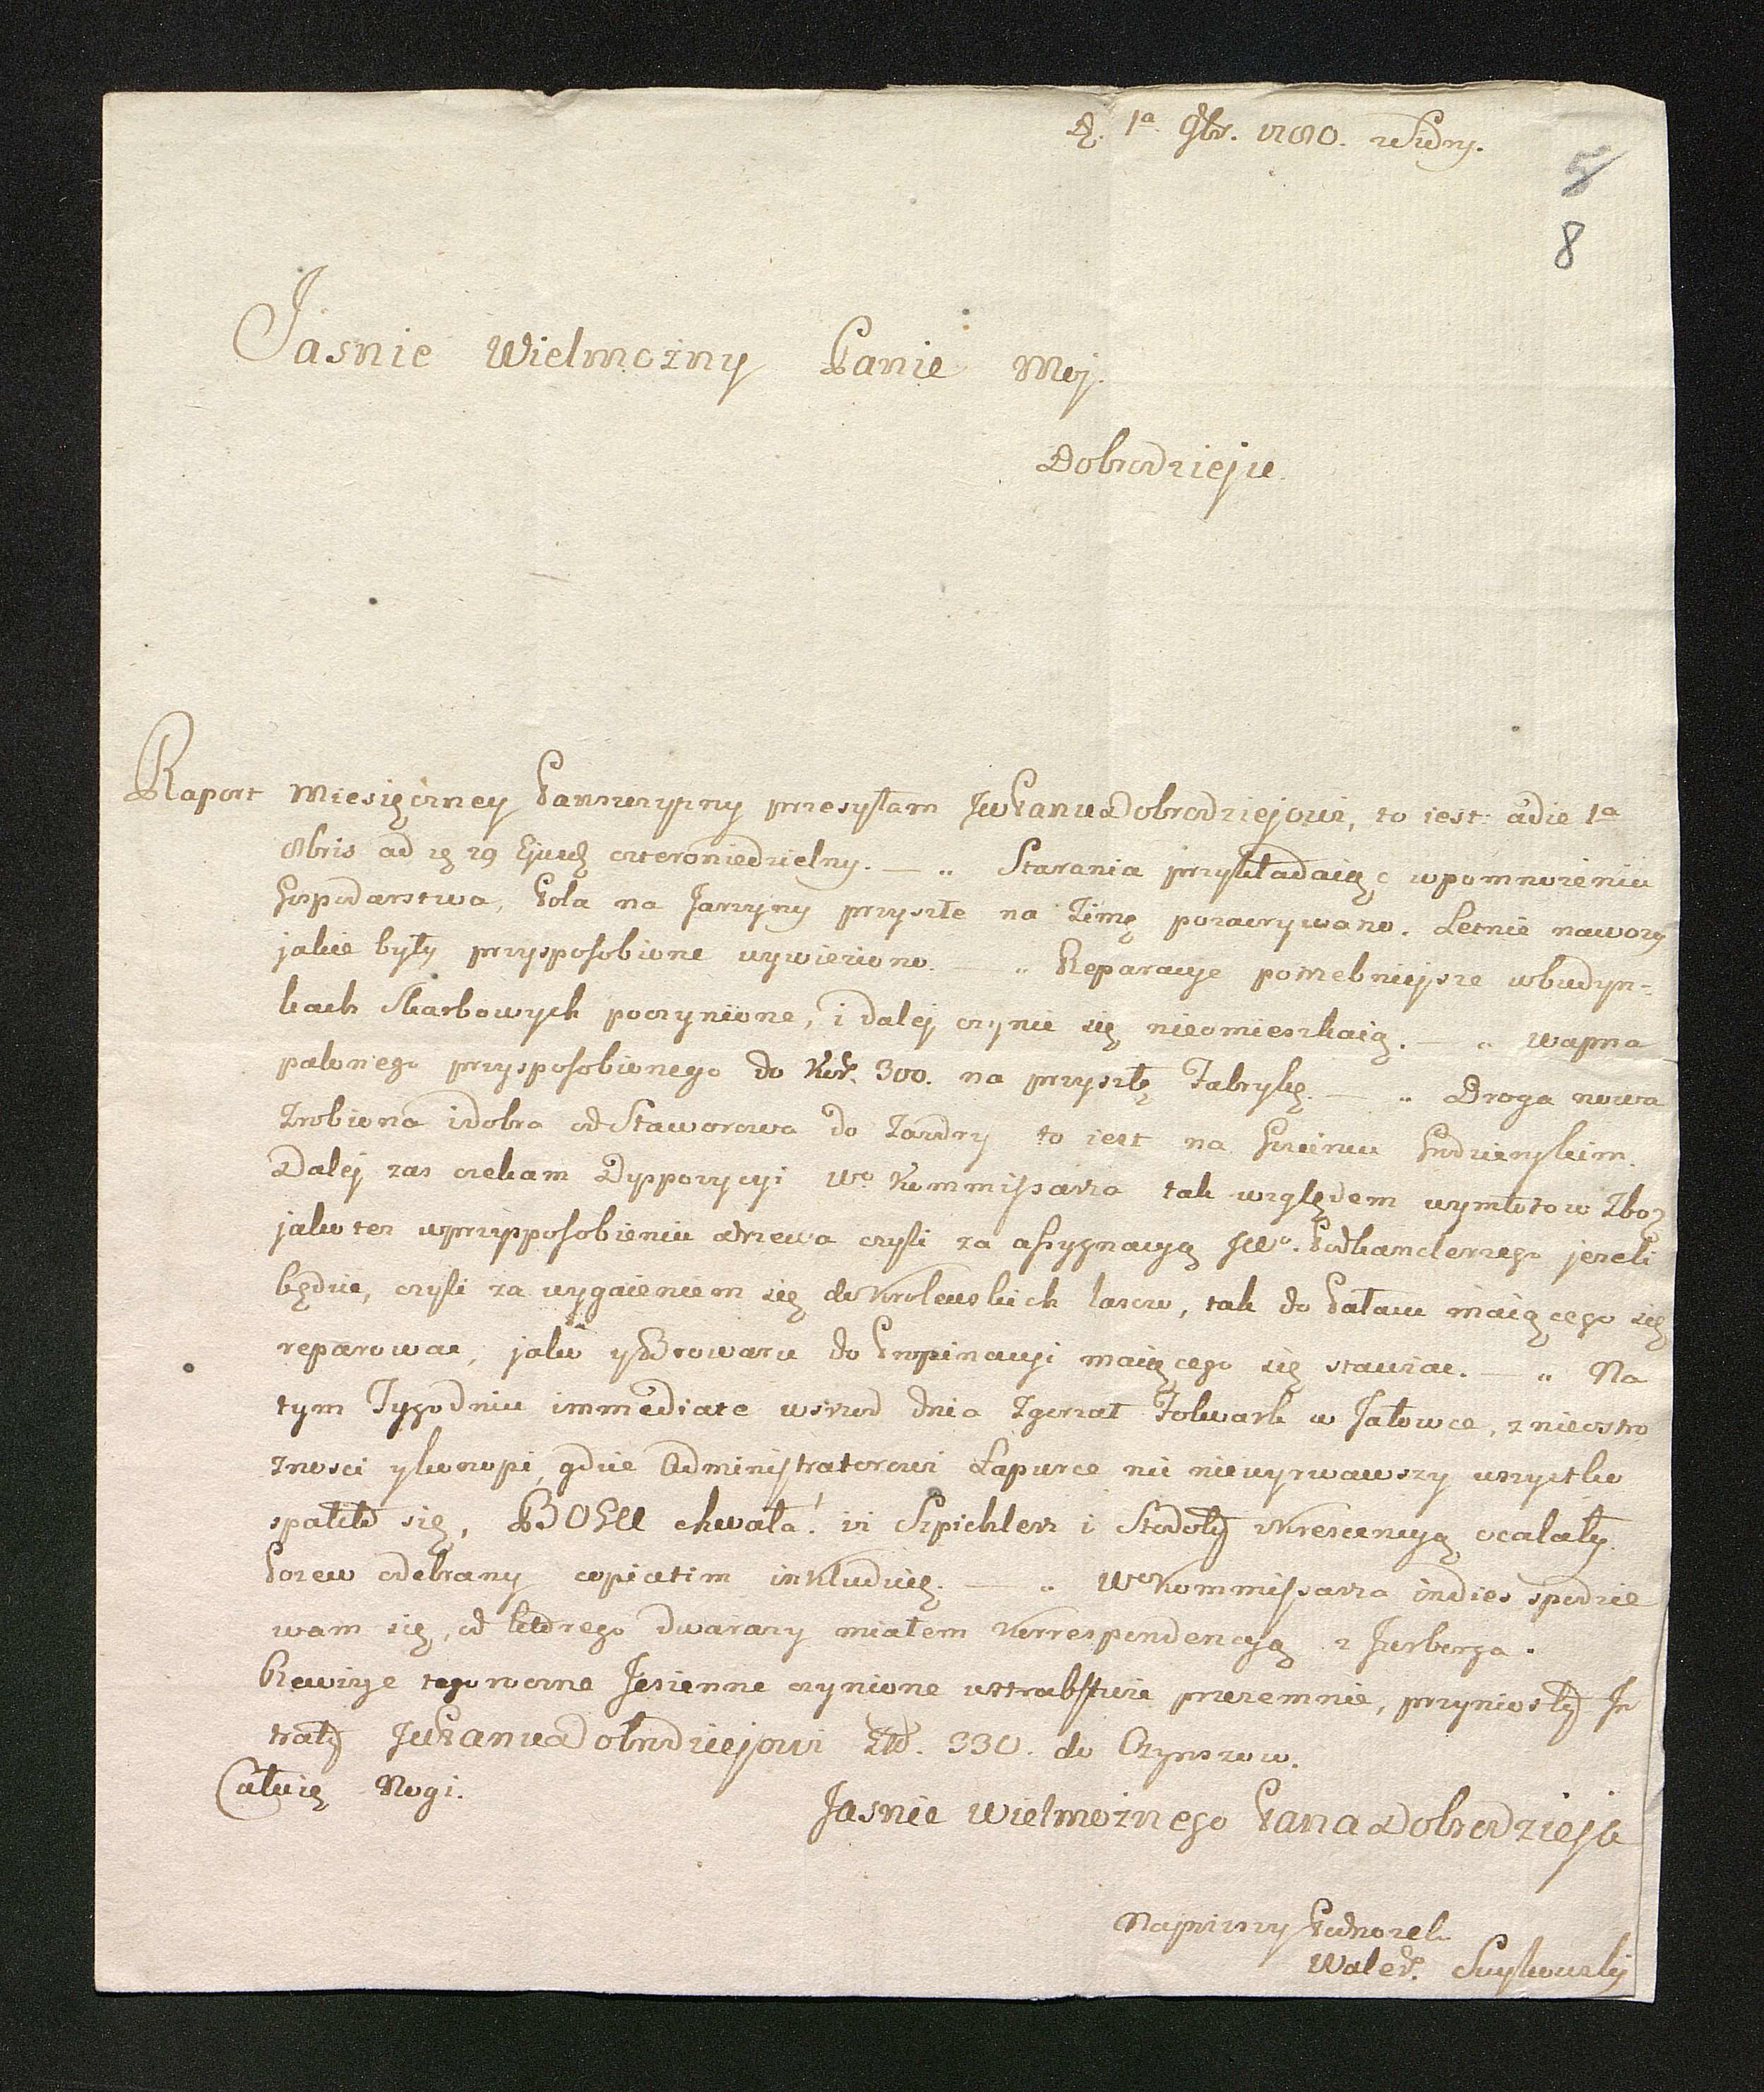 D. 1a 9br. 1780. z Sidry.
5
8
Jasnie Wielmozny Panie Mój
Dobrodzieju
Raport Miesięczney Panszczyzny przesyłam JWPanu Dobrodziejowi, to iest: a die 1a
8bris ad 29 Ejusd czteroniedzielny. — „ Starania przykładaiąc o wpomnozeniu
Gospodarstwa, Pola na Jarzyny przyszłe na Zimę pozaorywano. Letnie nawozy
jakie były przysposobione wywieziono. — „ Reparacye potrzebniejsze w budyn-
kach Skarbowych poczynione, i dalej czynić się nieomieszkaią. — „ Wapna
palonego przysposobionego do 300. na przyszłą Fabrykę. — „ Droga nowa
Zrobiona i dobra od Staworowa do to iest na Goscincu Grodzienskim.
Dalej zas czekam Dyspozycyi Wo Kommissarza tak względem wymłotow Zboż
jako tez w przysposobieniu drzewa czyli za assygnacyą JWo. Podkanclerzego jezeli
będzie, czyli za wygaieniem się do Krolewskich lasow, tak do Pałacu maiącego się
reparować, jako y Browaru do Propinacyi maiącego się stawiać. — „ Na
tym Tygodniu immediate wsrzod dnia Zgorzał Folwark w Jałowce, z nieostro
znosci y konopi, gdzie Administratorowi Łapurce nic niewyrwawszy wszystko
spaliło się, BOGU chwała! iż Szpichlerz i Stodoły z Krescencyą ocalały.
Pozew odebrany copiatim inkluduię. — „ Wo Kommissarza indies spodzie
wam się, od ktorego dwa razy miałem Korrespondencyą z Jurborga.
Rewizye tegoroczne Jesienne czynione w Hrabstwie przezemnie, przyniosły In
traty JWPanu Dobrodziejowi Złł. 330. do Czynszow.
Całuię Nogi.
Jasnie Wielmoznego Pana Dobrodzieja
Najnizszy Podnozek
Waler.